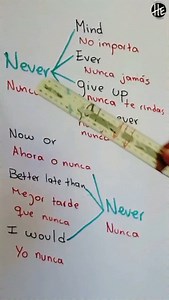 HE
Mind
No importa
Ever
Nunca jamás
Never
Nunca
give up
nunca te rindas
ever
nunca
Now or
Ahora o nunca
Better late than
Mejor tarde
que nunca
Never
Nunca
I would
Yo nunca